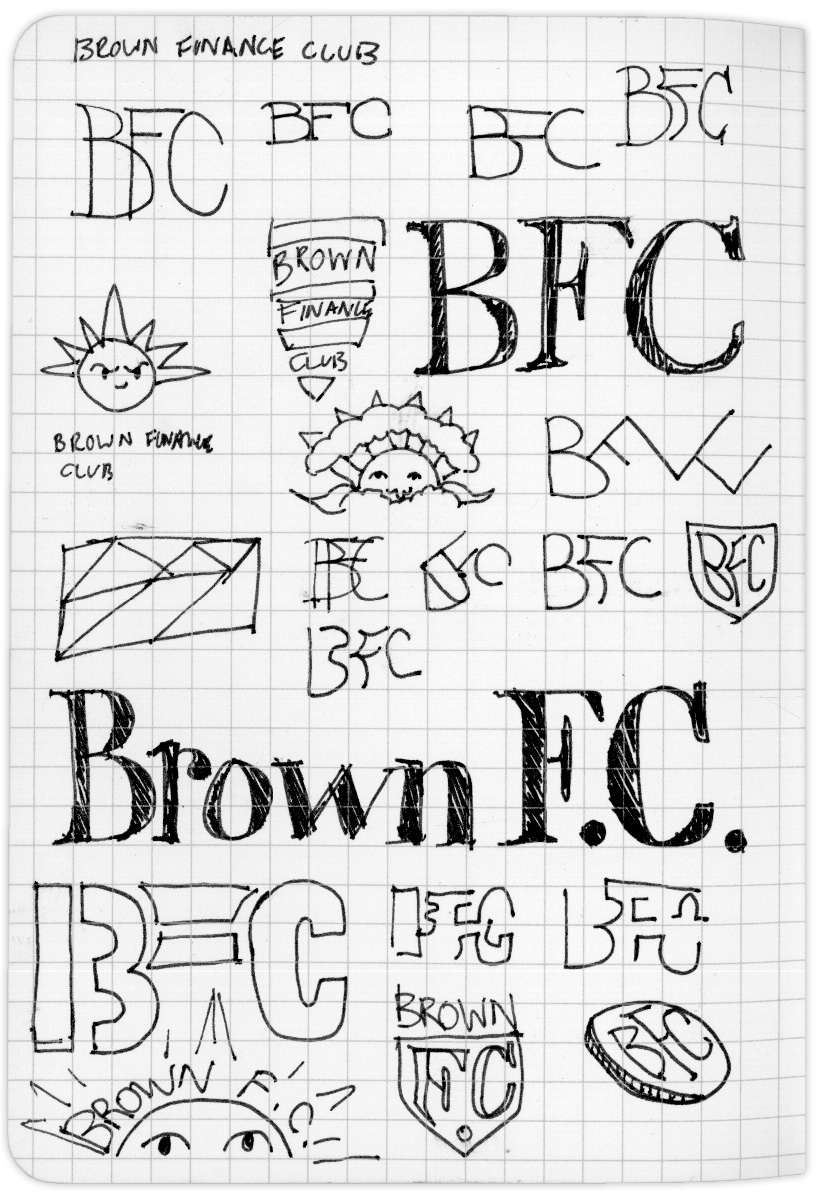 BROWN FINANCE CLUB
BFC
BFC
BFC
BFC
BROWN
FINANCE
CLUB
BFC
BROWN FINANCE
CLUB
BFC
BFC
BFC
BFC
BFC
BFC
Brown F.C.
BFC
BFC
BFC
BROWN
FC
BFC
BROWN F.C.